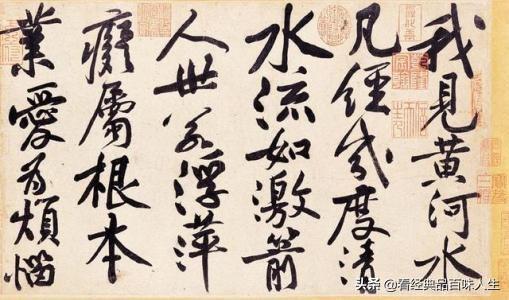 我見黃河水
凡經幾度清
水流如激箭
人世若浮萍
癡屬根本
業愛為煩惱
头条 @看经典品百味人生